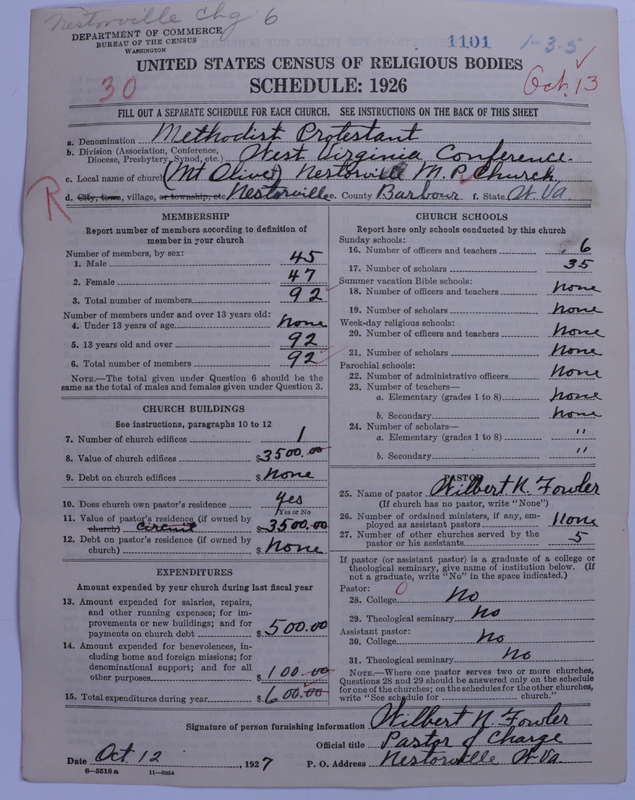 Nestorville Chg 6
DEPARTMENT OF COMMERCE
BUREAU OF THE CENSUS
WASHINGTON
1101
1-3-5
UNITED STATES CENSUS OF RELIGIOUS BODIES
30
SCHEDULE: 1926
Oct. 13
FILL OUT A SEPARATE SCHEDULE FOR EACH CHURCH. SEE INSTRUCTIONS ON THE BACK OF THIS SHEET
a. Denomination Methodist Protestant
b. Division (Association, Conference, Diocese, Presbytery, Synod, etc.) West Virginia Conference.
c. Local name of church (Mt Olive) Nestorville M.P. Church
R
d. City, town, village, or township, etc. Nestorville e. County Barbour f. State W. Va.
MEMBERSHIP
Report number of members according to definition of
member in your church
Number of members, by sex:
1. Male 45
2. Female 47
3. Total number of members 92
Number of members under and over 13 years old:
4. Under 13 years of age None
5. 13 years old and over 92
6. Total number of members 92
NOTE.—The total given under Question 6 should be the
same as the total of males and females given under Question 3.
CHURCH BUILDINGS
See instructions, paragraphs 10 to 12
7. Number of church edifices 1
8. Value of church edifices $3500.00
9. Debt on church edifices $None
10. Does church own pastor's residence yes
(Yes or No)
11. Value of pastor's residence (if owned by
church) circuit $3500.00
12. Debt on pastor's residence (if owned by
church) $None
EXPENDITURES
Amount expended by your church during last fiscal year
13. Amount expended for salaries, repairs,
and other running expenses; for im-
provements or new buildings; and for
payments on church debt $500.00
14. Amount expended for benevolences, in-
cluding home and foreign missions; for
denominational support; and for all
other purposes $100.00
15. Total expenditures during year $600.00
CHURCH SCHOOLS
Report here only schools conducted by this church
Sunday schools:
16. Number of officers and teachers 6
17. Number of scholars 35
Summer vacation Bible schools:
18. Number of officers and teachers None
19. Number of scholars None
Week-day religious schools:
20. Number of officers and teachers None
21. Number of scholars None
Parochial schools:
22. Number of administrative officers None
23. Number of teachers—
a. Elementary (grades 1 to 8) None
b. Secondary None
24. Number of scholars—
a. Elementary (grades 1 to 8) "
b. Secondary "
PASTOR
25. Name of pastor Wilbert N. Fowler
(If church has no pastor, write "None")
26. Number of ordained ministers, if any, em-
ployed as assistant pastors None
27. Number of other churches served by the
pastor or his assistants 5
If pastor (or assistant pastor) is a graduate of a college or
theological seminary, give name of institution below. (If
not a graduate, write "No" in the space indicated.)
Pastor: 0
28. College No
29. Theological seminary No
Assistant pastor:
30. College No
31. Theological seminary No
NOTE.—Where one pastor serves two or more churches,
Questions 28 and 29 should be answered only on the schedule
for one of the churches; on the schedules for the other churches,
write "See schedule for church."
Signature of person furnishing information Wilbert N. Fowler
Official title Pastor of Charge
Date Oct 12, 1927 P. O. Address Nestorville W. Va.
8—5518 a 11—9024